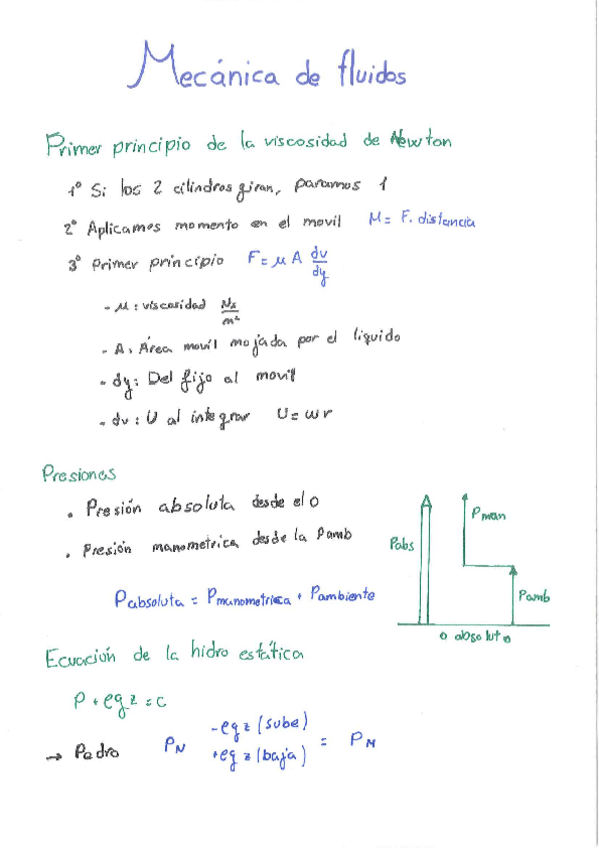 Mecánica de fluidos
Primer principio de la viscosidad de Newton
1° Si los 2 cilindros giran, paramos 1
2° Aplicamos momento en el movil M = F. distancia
3° Primer principio F = μ A dv/dy
- μ: viscosidad Ns/m²
- A: Área movil mojada por el liquido
- dy: Del fijo al movil
- dv: U al integrar U = ωr
Presiones
• Presión absoluta desde el 0
• Presión manometrica desde la Pamb
Pabsoluta = Pmanometrica + Pambiente
Pabs
Pman
Pamb
0 absoluto
Ecuación de la hidro estática
P + ρgz = C
→ Pedro PN -ρgz (sube) +ρgz (baja) = PM